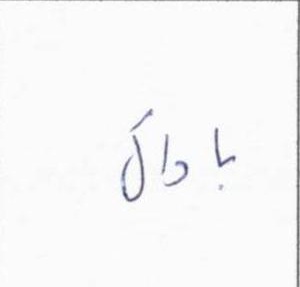 بادال